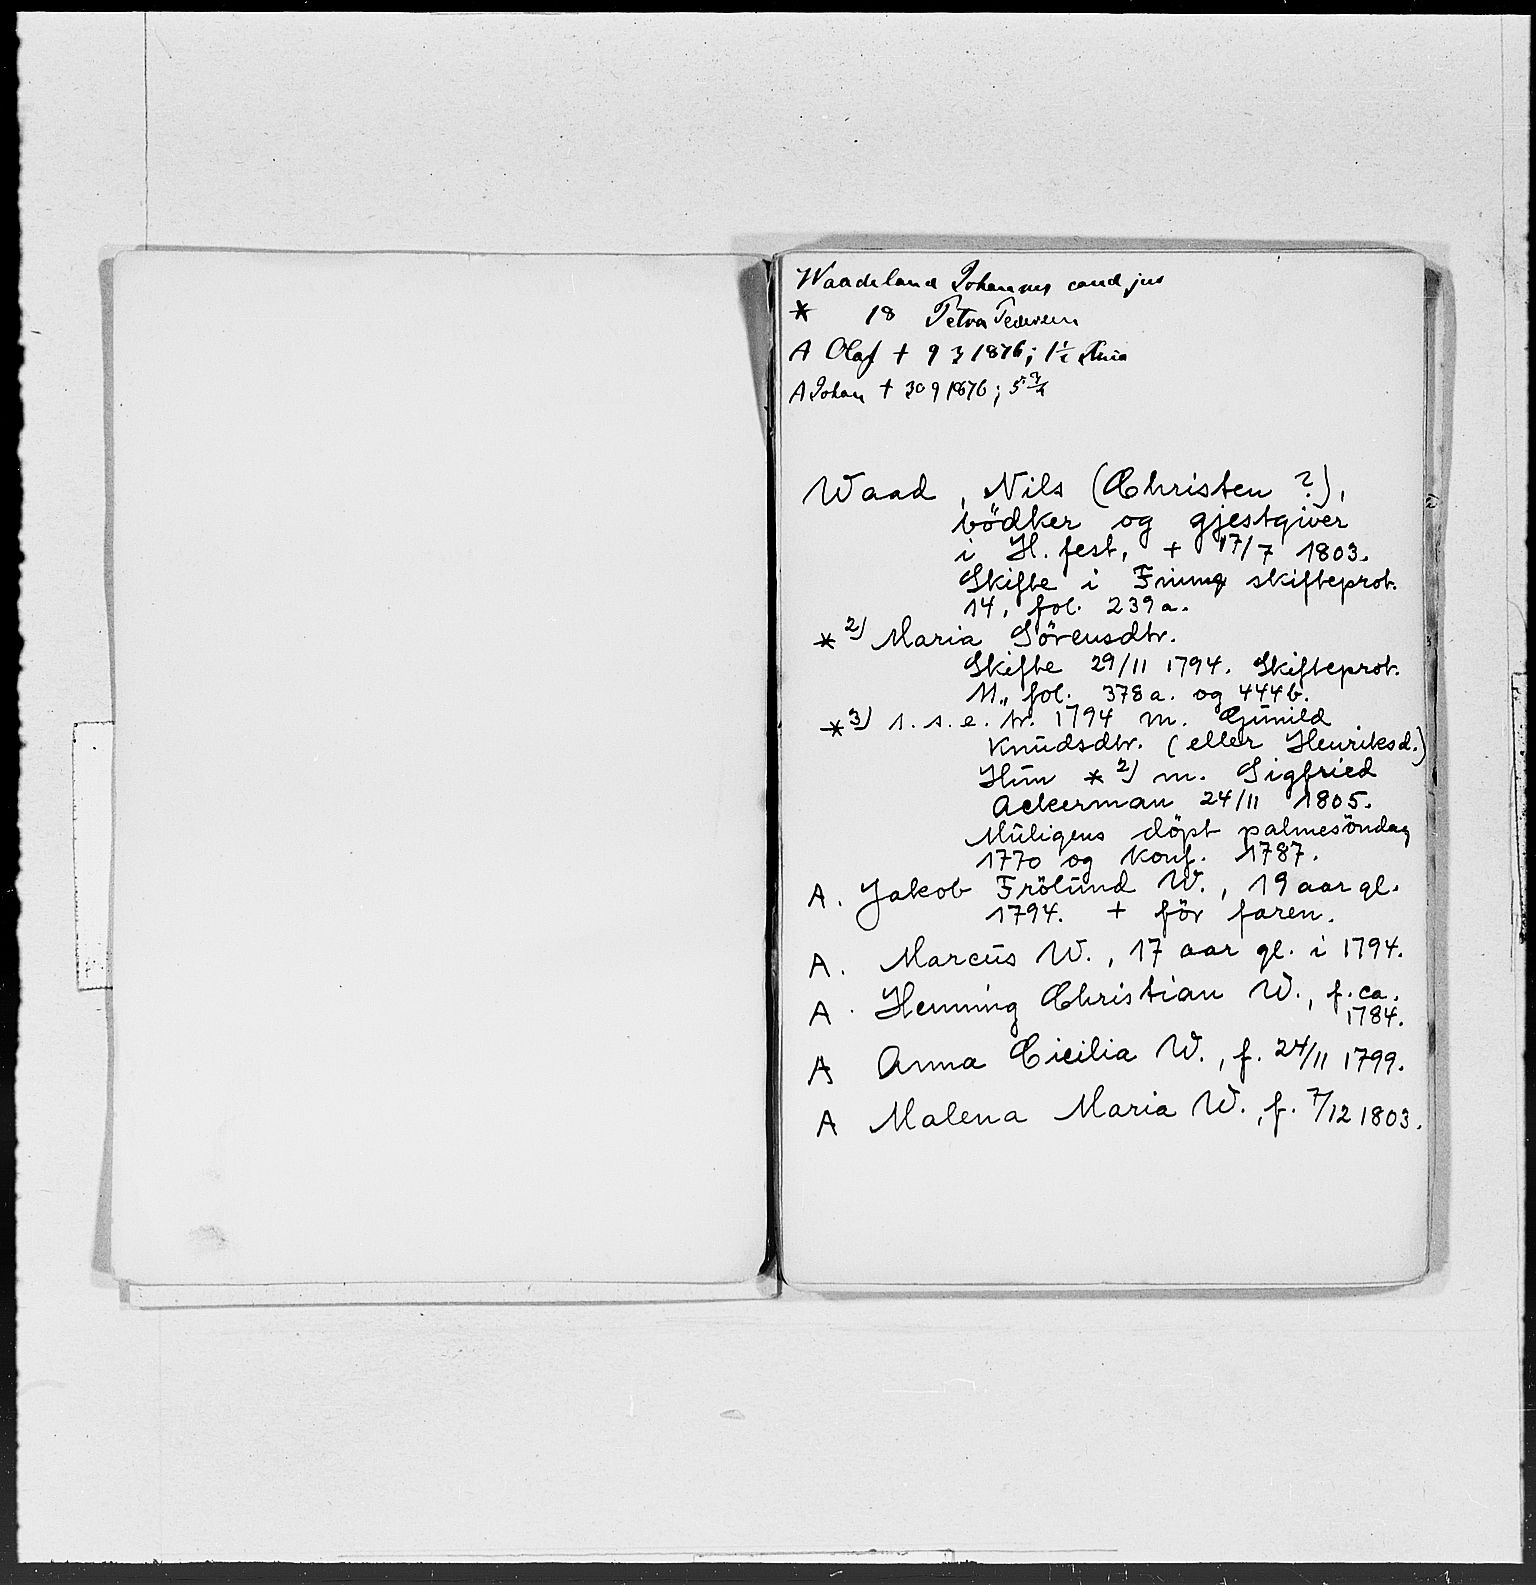 Waadeland Johannes cand jus
* 18 Petra Pedersen
A Olaf + 9 3 1876; 1½
A Johan + 30 9 1876; 5¾
Waad, Nils (Christen ?),
bödker og gjestgiver
i H. fest, + 17/7 1803.
Skifte i skifteprot.
14, fol. 239a.
*2) Maria Sörensdtr.
Skifte 29/11 1794. Skifteprot.
11, fol. 378a. og 444b.
*3) s.s.e. tr. 1794 m. Gunild
Knudsdtr. (eller Henriksd.)
Hun *2) m. Sigfried
Ackerman 24/11 1805.
Muligens döpt palmesöndag
1770 og konf. 1787.
A. Jakob Frölund W., 19 aar gl.
1794. + för faren.
A. Marcus W., 17 aar gl. i 1794.
A. Henning Christian W., f. ca.
1784.
A Anna Cicilia W., f. 24/11 1799.
A Malena Maria W., f. 7/12 1803.